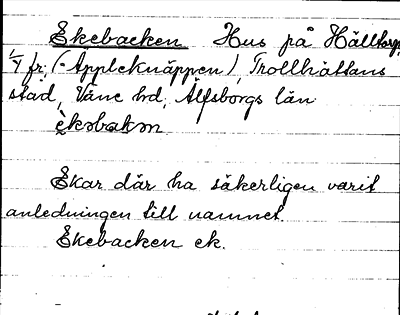 Ekebacken Hus på Hälltorp
1/4 fr. (-Appleknäppen), Trollhättans
stad, Väne hd, Älfsborgs län
èkəbakən
Ekar där ha säkerligen varit
anledningen till namnet.
Ekebacken ek.